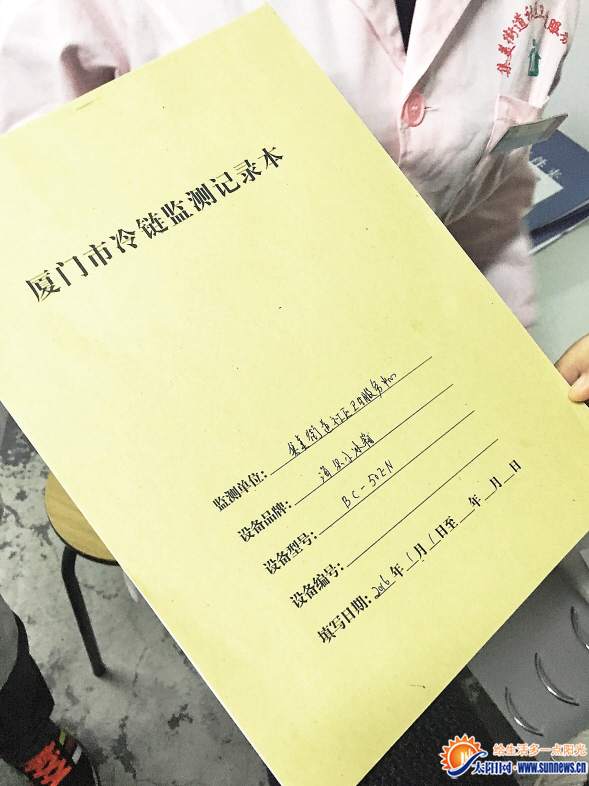 集美街道社区卫生服务
厦门市冷链监测记录本
监测单位：集美街道社区卫生服务中心
设备品牌：海尔小冰箱
设备型号：BC-50EN
设备编号：
填写日期：2016年1月1日至 年 月 日
给生活多一点阳光
太阳网·www.sunnews.cn